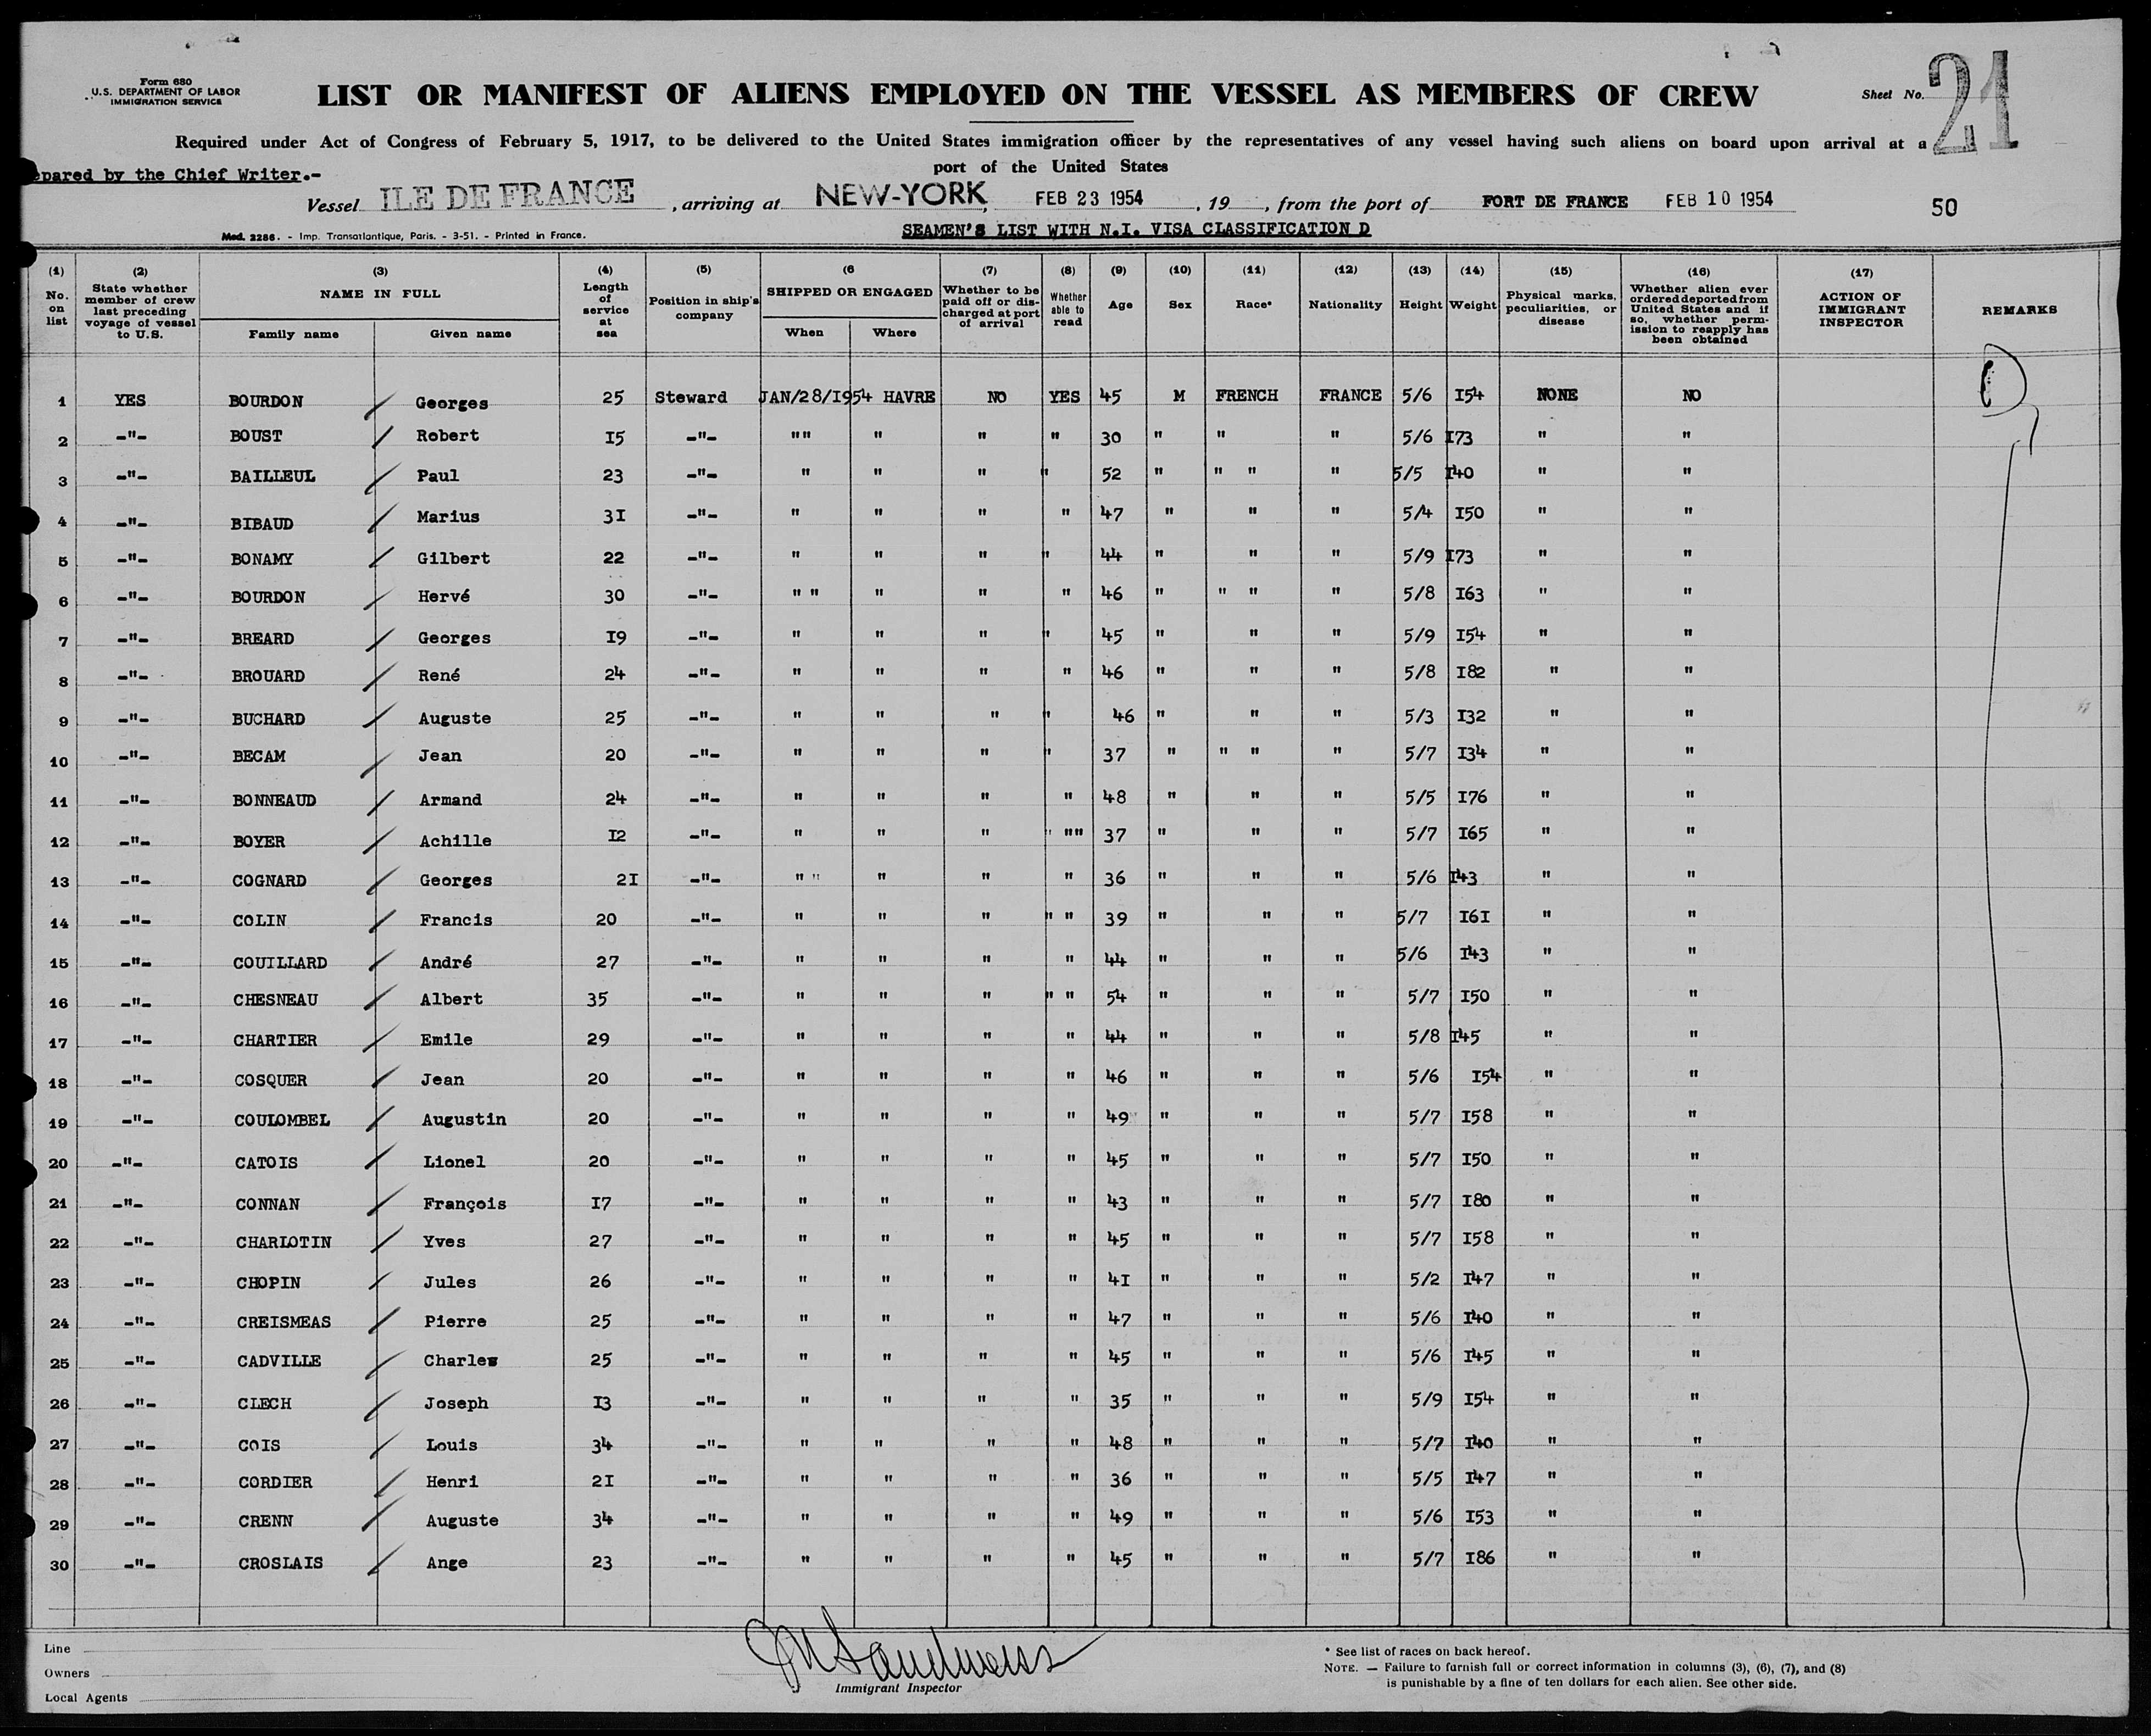 Form 680
U.S. DEPARTMENT OF LABOR
IMMIGRATION SERVICE
LIST OR MANIFEST OF ALIENS EMPLOYED ON THE VESSEL AS MEMBERS OF CREW
Sheet No. 21
Required under Act of Congress of February 5, 1917, to be delivered to the United States immigration officer by the representatives of any vessel having such aliens on board upon arrival at a
port of the United States
epared by the Chief Writer.-
Vessel ILE DE FRANCE, arriving at NEW-YORK, FEB 23 1954, 19 , from the port of FORT DE FRANCE FEB 10 1954 50
Mod. 2286. - Imp. Transatlantique, Paris. - 3-51. - Printed in France.
SEAMEN'S LIST WITH N.I. VISA CLASSIFICATION D
(1) (2) (3) (4) (5) (6 (7) (8) (9) (10) (11) (12) (13) (14) (15) (16) (17)
No. on list
State whether member of crew last preceding voyage of vessel to U.S.
NAME IN FULL
Family name Given name
Length of service at sea
Position in ship's company
SHIPPED OR ENGAGED
When Where
Whether to be paid off or discharged at port of arrival
Whether able to read
Age
Sex
Race*
Nationality
Height
Weight
Physical marks, peculiarities, or disease
Whether alien ever ordered deported from United States and if so, whether permission to reapply has been obtained
ACTION OF IMMIGRANT INSPECTOR
REMARKS
1 YES BOURDON / Georges 25 Steward JAN/28/1954 HAVRE NO YES 45 M FRENCH FRANCE 5/6 I54 NONE NO
2 -"- BOUST / Robert I5 -"- "" " " " 30 " " " 5/6 I73 " "
3 -"- BAILLEUL / Paul 23 -"- " " " " 52 " " " " 5/5 I40 " "
4 -"- BIBAUD / Marius 3I -"- " " " " 47 " " " 5/4 I50 " "
5 -"- BONAMY / Gilbert 22 -"- " " " " 44 " " " 5/9 I73 " "
6 -"- BOURDON / Hervé 30 -"- " " " " " 46 " " " " 5/8 I63 " "
7 -"- BREARD / Georges I9 -"- " " " " 45 " " " 5/9 I54 " "
8 -"- BROUARD / René 24 -"- " " " " 46 " " " 5/8 I82 " "
9 -"- BUCHARD / Auguste 25 -"- " " " " 46 " " " 5/3 I32 " "
10 -"- BECAM / Jean 20 -"- " " " " 37 " " " " 5/7 I34 " "
11 -"- BONNEAUD / Armand 24 -"- " " " " 48 " " " 5/5 I76 " "
12 -"- BOYER / Achille I2 -"- " " " " "" 37 " " " 5/7 I65 " "
13 -"- COGNARD / Georges 2I -"- " " " " " 36 " " " 5/6 I43 " "
14 -"- COLIN / Francis 20 -"- " " " " " 39 " " " 5/7 I6I " "
15 -"- COUILLARD / André 27 -"- " " " " 44 " " " 5/6 I43 " "
16 -"- CHESNEAU / Albert 35 -"- " " " " " 54 " " " 5/7 I50 " "
17 -"- CHARTIER / Emile 29 -"- " " " " 44 " " " 5/8 I45 " "
18 -"- COSQUER / Jean 20 -"- " " " " 46 " " " 5/6 I54 " "
19 -"- COULOMBEL / Augustin 20 -"- " " " " 49 " " " 5/7 I58 " "
20 -"- CATOIS / Lionel 20 -"- " " " " 45 " " " 5/7 I50 " "
21 -"- CONNAN / François I7 -"- " " " " 43 " " " 5/7 I80 " "
22 -"- CHARLOTIN / Yves 27 -"- " " " " 45 " " " 5/7 I58 " "
23 -"- CHOPIN / Jules 26 -"- " " " " 4I " " " 5/2 I47 " "
24 -"- CREISMEAS / Pierre 25 -"- " " " " 47 " " " 5/6 I40 " "
25 -"- CADVILLE / Charles 25 -"- " " " " 45 " " " 5/6 I45 " "
26 -"- CLECH / Joseph I3 -"- " " " " 35 " " " 5/9 I54 " "
27 -"- COIS / Louis 34 -"- " " " " 48 " " " 5/7 I40 " "
28 -"- CORDIER / Henri 2I -"- " " " " 36 " " " 5/5 I47 " "
29 -"- CRENN / Auguste 34 -"- " " " " 49 " " " 5/6 I53 " "
30 -"- CROSLAIS / Ange 23 -"- " " " " 45 " " " 5/7 I86 " "
Line
Owners
Local Agents
Immigrant Inspector
* See list of races on back hereof.
NOTE. — Failure to furnish full or correct information in columns (3), (6), (7), and (8)
is punishable by a fine of ten dollars for each alien. See other side.